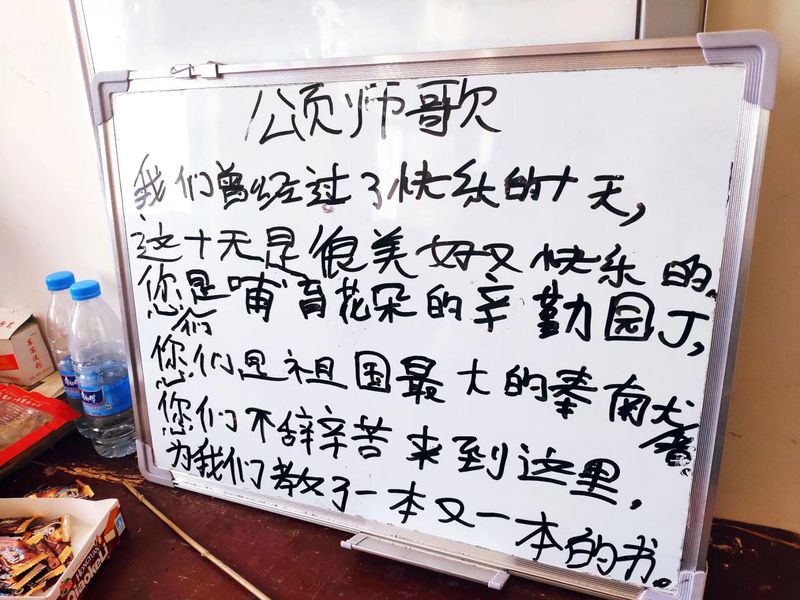 颂师歌
我们曾经过了快乐的十天,
这十天是很美好又快乐的.
您们是哺育花朵的辛勤园丁,
您们是祖国最大的奉献者
您们不辞辛苦来到这里,
为我们教了一本又一本的书。
Qiaokeli